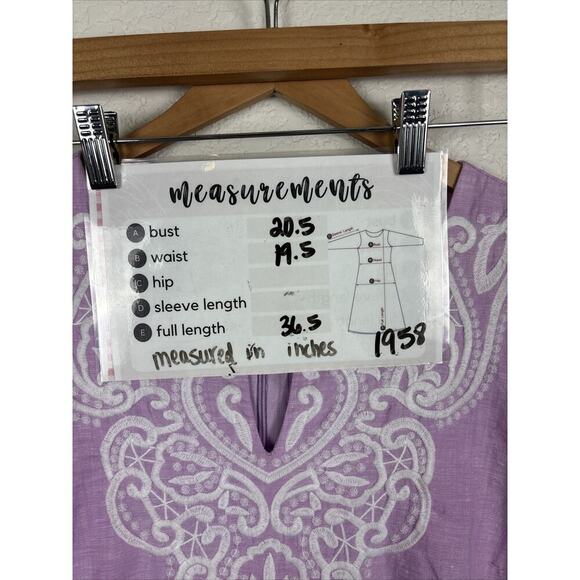 measurements
A bust 20.5
B waist 19.5
C hip
D sleeve length -
E full length 36.5
measured in inches 1958